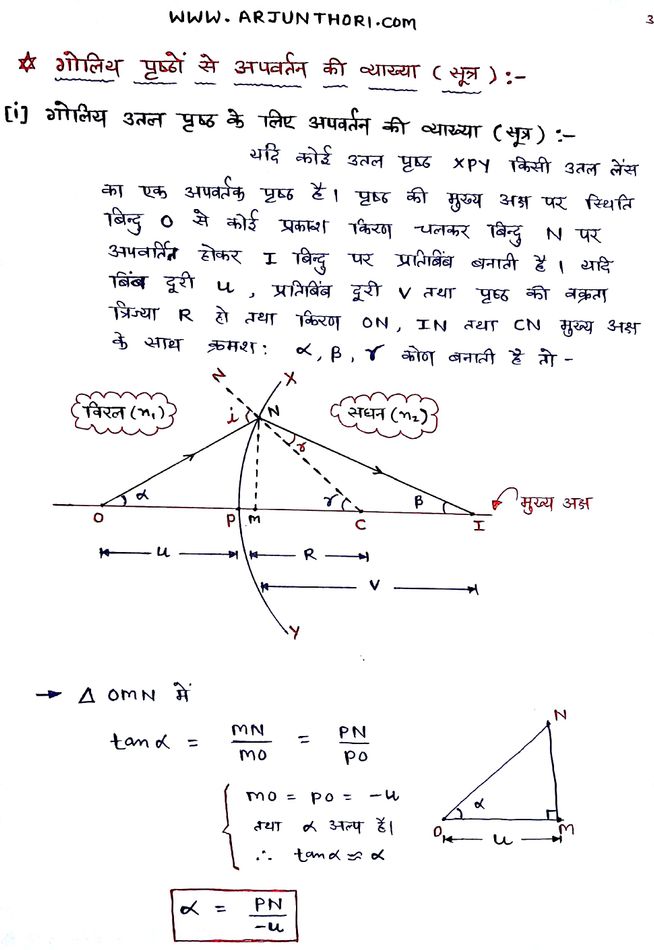 WWW.ARJUNTHORI.COM
3
☆ गोलिय पृष्ठों से अपवर्तन की व्याख्या (सूत्र) :-
[i] गोलिय उतल पृष्ठ के लिए अपवर्तन की व्याख्या (सूत्र) :-
यदि कोई उतल पृष्ठ XPY किसी उतल लेंस
का एक अपवर्तक पृष्ठ है। पृष्ठ की मुख्य अक्ष पर स्थिति
बिन्दु O से कोई प्रकाश किरण चलकर बिन्दु N पर
अपवर्तित होकर I बिन्दु पर प्रतिबिंब बनाती है। यदि
बिंब दूरी u, प्रतिबिंब दूरी V तथा पृष्ठ की वक्रता
त्रिज्या R हो तथा किरण ON, IN तथा CN मुख्य अक्ष
के साथ क्रमश: α, β, γ कोण बनाती है तो -
Z X
विरल (n₁) i N सघन (n₂)
r
α γ β मुख्य अक्ष
O P M C I
u R
V
Y
→ Δ OMN में
tanα = MN/MO = PN/PO
MO = PO = -u
तथा α अल्प है।
∴ tanα ≈ α
α = PN/-u
N
α
O M
u